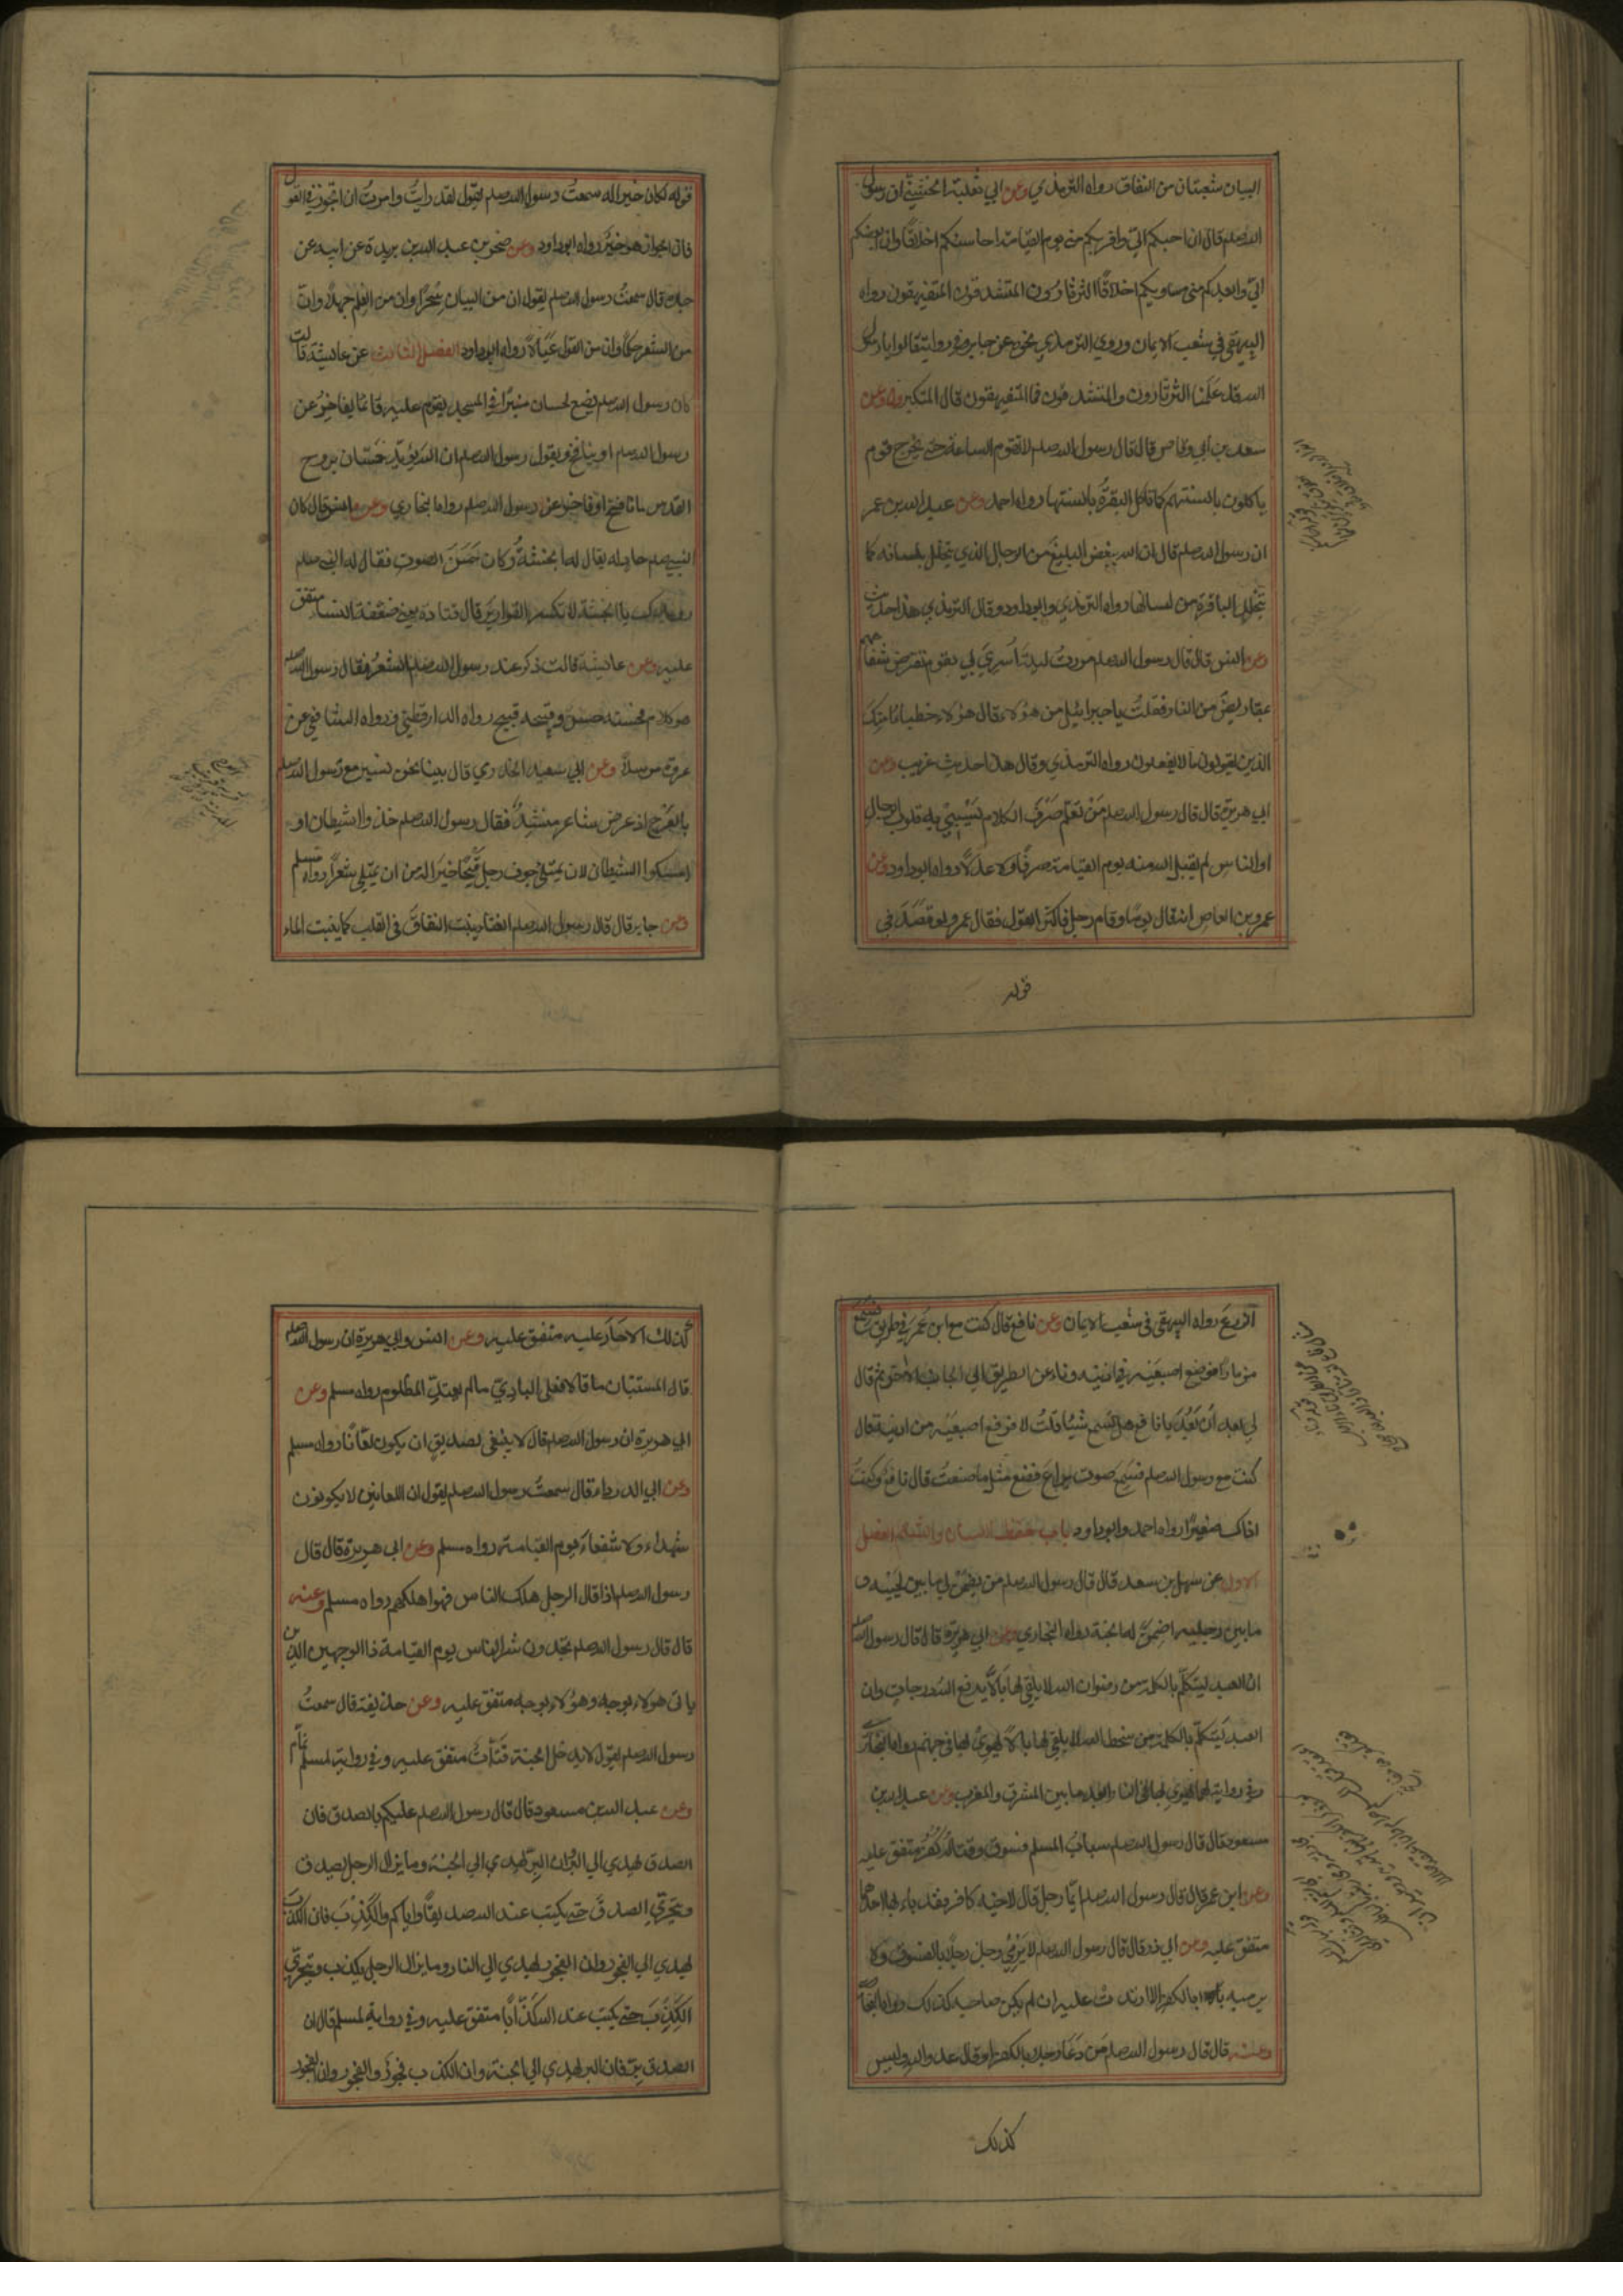 البيان شعبتان من النفاق رواه الترمذي وعن ابي ثعلبة الخشني ان رسول
الله صلعم قال ان احبكم الي واقربكم مني يوم القيامة احاسنكم اخلاقا وان ابغضكم
الي وابعدكم مني مساويكم اخلاقا الثرثارون المتشدقون المتفيهقون رواه
البيهقي في شعب الايمان وروي الترمذي نحوه عن جابر وفي روايته قالوا يا رسول
الله قد علمنا الثرثارون والمتشدقون فما المتفيهقون قال المتكبرون وعن
سعد بن ابي وقاص قال قال رسول الله صلعم لا تقوم الساعة حتى يخرج قوم
ياكلون بالسنتهم كما تاكل البقرة بالسنتها رواه احمد وعن عبد الله بن عمر
ان رسول الله صلعم قال ان الله يبغض البليغ من الرجال الذي يتخلل بلسانه كما
يتخلل الباقرة من لسانها رواه الترمذي وابوداود وقال الترمذي هذا حديث
وعن انس قال قال رسول الله صلعم مررت ليلة اسري بي بقوم تقرض شفاههم
بمقاريض من النار فقلت يا جبرائيل من هؤلاء قال هؤلاء خطباء امتك
الذين يقولون ما لا يفعلون رواه الترمذي وقال هذا حديث غريب وعن
ابي هريرة قال قال رسول الله صلعم من تعلم صرف الكلام ليسبي به قلوب الرجال
او الناس لم يقبل الله منه يوم القيامة صرفا ولا عدلا رواه ابوداود وعن
عمرو بن العاص انه قال يوما وقام رجل فاكثر القول فقال عمرو لو قصد في
قوله
قوله لكان خيرا له سمعت رسول الله صلعم يقول لقد رايت وامرت ان اتجوز في القول
فان الجواز هو خير رواه ابوداود وعن صخر بن عبد الله بن بريدة عن ابيه عن
جده قال سمعت رسول الله صلعم يقول ان من البيان سحرا وان من العلم جهلا وان
من الشعر حكما وان من القول عيالا رواه ابوداود الفصل الثالث عن عايشة قالت
كان رسول الله صلعم يضع لحسان منبرا في المسجد يقوم عليه قائما يفاخر عن
رسول الله صلعم او ينافح ويقول رسول الله صلعم ان الله يؤيد حسان بروح
القدس ما نافح او فاخر عن رسول الله صلعم رواه البخاري وعن انس قال كان
للنبي صلعم حاد له يقال له انجشة وكان حسن الصوت فقال له النبي صلعم
رويدك يا انجشة لا تكسر القوارير قال قتادة يعني ضعفة النساء متفق
عليه وعن عايشة قالت ذكر عند رسول الله صلعم الشعر فقال رسول الله صلعم
هو كلام فحسنه حسن وقبيحه قبيح رواه الدارقطني ورواه الشافعي عن
عروة مرسلا وعن ابي سعيد الخدري قال بينا نحن نسير مع رسول الله صلعم
بالعرج اذ عرض شاعر ينشد فقال رسول الله صلعم خذوا الشيطان او
امسكوا الشيطان لان يمتلئ جوف رجل قيحا خير له من ان يمتلي شعرا رواه مسلم
وعن جابر قال قال رسول الله صلعم الغناء ينبت النفاق في القلب كما ينبت الماء
الزرع رواه البيهقي في شعب الايمان وعن نافع قال كنت مع ابن عمر في طريق فسمع
مزمارا فوضع اصبعيه في اذنيه وناء عن الطريق الي الجانب الاخر ثم قال
لي بعد ان بعد يا نافع هل تسمع شيئا قلت لا فرفع اصبعيه من اذنيه قال
كنت مع رسول الله صلعم فسمع صوت يراع فصنع مثل ما صنعت قال نافع وكنت
اذ ذاك صغيرا رواه احمد وابوداود باب حفظ اللسان والشتم الفصل
الاول عن سهل بن سعد قال قال رسول الله صلعم من يضمن لي ما بين لحييه و
ما بين رجليه اضمن له الجنة رواه البخاري وعن ابي هريرة قال قال رسول الله صلعم
ان العبد ليتكلم بالكلمة من رضوان الله لا يلقي لها بالا يرفع الله درجات وان
العبد ليتكلم بالكلمة من سخط الله لا يلقي لها بالا يهوي بها في جهنم رواه البخاري
وفي رواية لهما يهوي بها في النار ابعد ما بين المشرق والمغرب وعن عبد الله بن
مسعود قال قال رسول الله صلعم سباب المسلم فسوق وقتاله كفر متفق عليه
وعن ابن عمر قال قال رسول الله صلعم ايما رجل قال لاخيه كافر فقد باء بها احدهما
متفق عليه وعن ابي ذر قال قال رسول الله صلعم لا يرمي رجل رجلا بالفسوق ولا
يرميه بالكفر الا ارتدت عليه ان لم يكن صاحبه كذلك رواه البخاري
وعنه قال قال رسول الله صلعم من دعا رجلا بالكفر او قال عدو الله وليس
كذلك
كذلك الا حار عليه متفق عليه وعن انس وابي هريرة ان رسول الله صلعم
قال المستبان ما قالا فعلى البادي مالم يعتد المظلوم رواه مسلم وعن
ابي هريرة ان رسول الله صلعم قال لا ينبغي لصديق ان يكون لعانا رواه مسلم
وعن ابي الدرداء قال سمعت رسول الله صلعم يقول ان اللعانين لا يكونون
شهداء ولا شفعاء يوم القيامة رواه مسلم وعن ابي هريرة قال قال
رسول الله صلعم اذا قال الرجل هلك الناس فهو اهلكهم رواه مسلم وعنه
قال قال رسول الله صلعم تجدون شر الناس يوم القيامة ذا الوجهين الذي
ياتي هولاء بوجه وهؤلاء بوجه متفق عليه وعن حذيفة قال سمعت
رسول الله صلعم يقول لا يدخل الجنة قتات متفق عليه وفي رواية لمسلم نمام
وعن عبد الله بن مسعود قال قال رسول الله صلعم عليكم بالصدق فان
الصدق يهدي الي البر وان البر يهدي الي الجنة وما يزال الرجل يصدق
ويتحري الصدق حتى يكتب عند الله صديقا واياكم والكذب فان الكذب
يهدي الي الفجور وان الفجور يهدي الي النار وما يزال الرجل يكذب ويتحري
الكذب حتى يكتب عند الله كذابا متفق عليه وفي رواية لمسلم قال ان
الصدق بر فان البر يهدي الي الجنة وان الكذب فجور والفجور وان الفجور